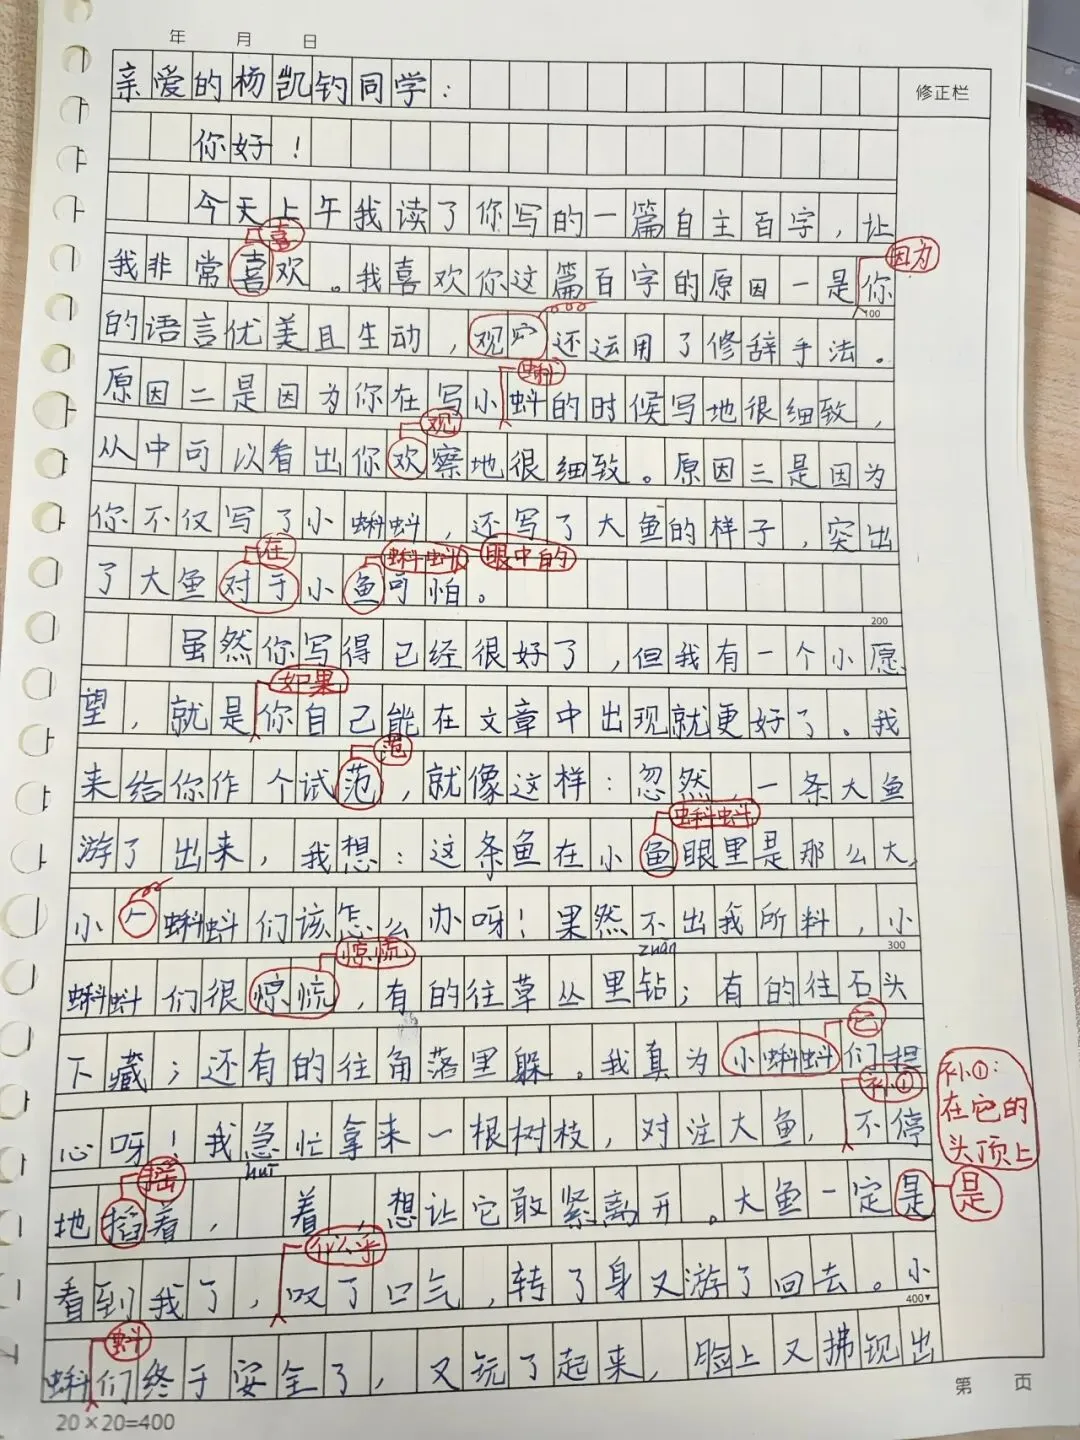 年 月 日
修正栏
亲爱的杨凯钧同学：
你好！
今天上午我读了你写的一篇自主百字，让
喜
因为
我非常喜欢。我喜欢你这篇百字的原因一是你
100
的语言优美且生动，观察还运用了修辞手法。
蝌
原因二是因为你在写小蚪的时候写地很细致，
观
从中可以看出你欢察地很细致。原因三是因为
你不仅写了小蝌蚪，还写了大鱼的样子，突出
在 蝌蚪 眼中的
了大鱼对于小鱼可怕。
200
虽然你写得已经很好了，但我有一个小愿
如果
望，就是你自己能在文章中出现就更好了。我
范
来给你作个试范，就像这样：忽然，一条大鱼
蝌蚪
游了出来，我想：这条鱼在小鱼眼里是那么大，
小 蝌蚪们该怎么办呀！果然不出我所料，小
惊慌
zuān
300
蝌蚪们很惊慌，有的往草丛里钻；有的往石头
它
下藏；还有的往角落里躲。我真为小蝌蚪们担
补①
补①：
在它的
头顶上
心呀！我急忙拿来一根树枝，对注大鱼，不停
摇
huī
地摇着， 着，想让它敢紧离开。大鱼一定是
是
似乎
看到我了，叹了口气，转了身又游了回去。小
400
蚪
蝌们终于安全了，又玩了起来，脸上又拂现出
20×20=400
第 页